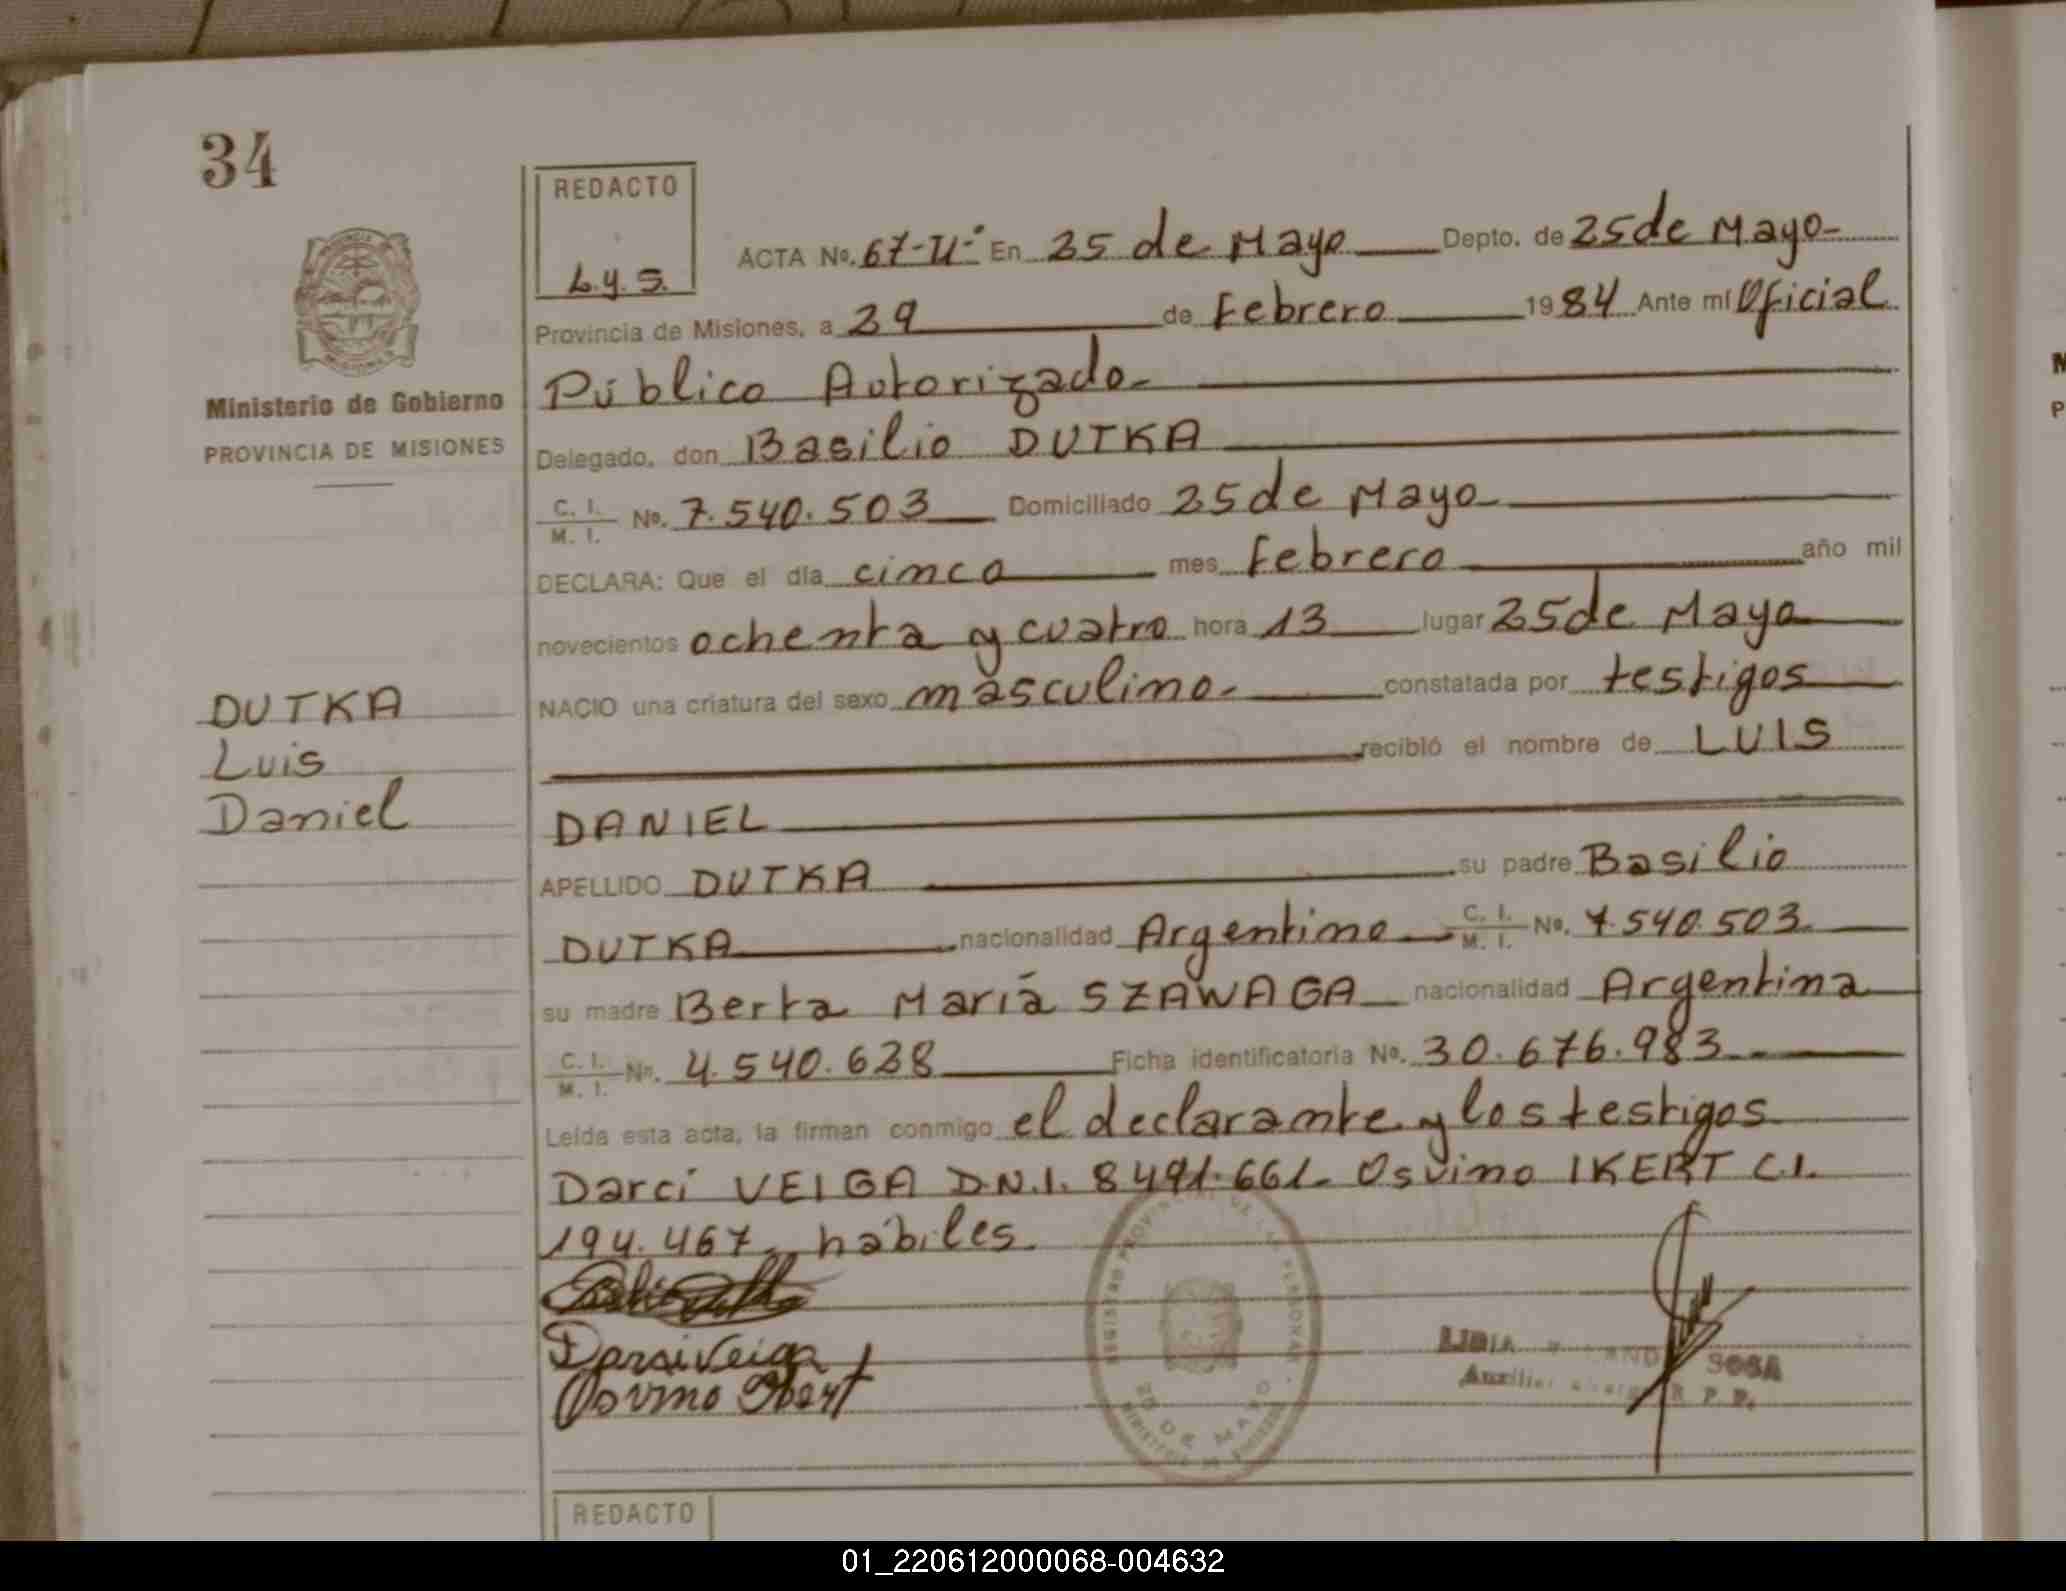 34
REDACTO
L.y.S.
ACTA No. 67-U-° En 25 de Mayo Depto. de 25 de Mayo-
Provincia de Misiones, a 29 de Febrero 1984 Ante mí Oficial
Público Autorizado-
Delegado, don Basilio DUTKA
C. I.
M. I. No. 7.540.503 Domiciliado 25 de Mayo
DECLARA: Que el día cinco mes Febrero año mil
novecientos ochenta y cuatro hora 13 lugar 25 de Mayo
NACIO una criatura del sexo masculino- constatada por testigos
recibió el nombre de LUIS
DANIEL
APELLIDO DUTKA su padre Basilio
DUTKA nacionalidad Argentino C. I. M. I. No. 7.540.503.
su madre Berta María SZAWAGA nacionalidad Argentina
C. I.
M. I. No. 4.540.628 Ficha identificatoria No. 30.676.983
Leída esta acta, la firman conmigo el declarante y los testigos
Darci VEIGA D.N.I. 8491.661- Osvino IKERT C.I.
194.467, habiles.
Darci Veiga
Osvino
Ministerio de Gobierno
PROVINCIA DE MISIONES
DUTKA
Luis
Daniel
REGISTRO PROVINCIAL DE LAS PERSONAS
25 DE MAYO
LIDIA SOSA
Auxiliar R. P. P.
REDACTO
01_220612000068-004632